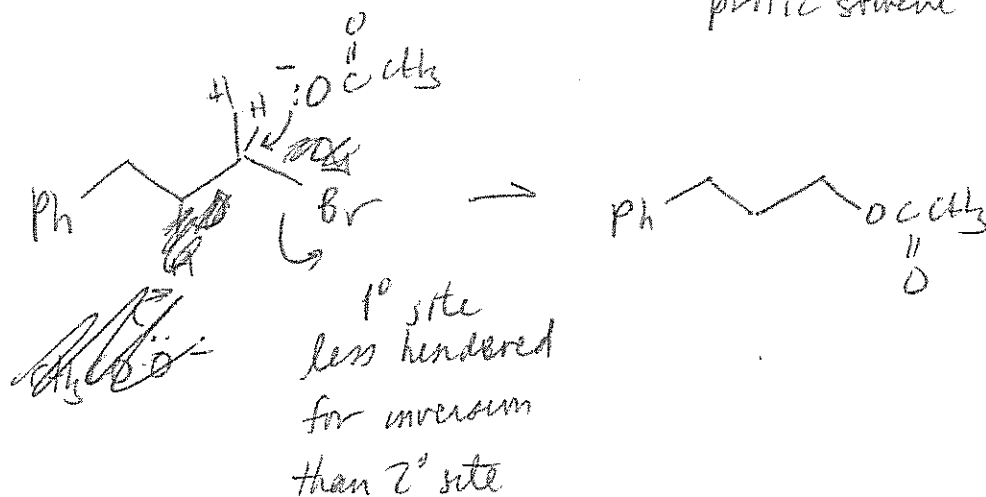 protic solvent
O
||
H H - :O C CH3
Ph Br
Ph O C CH3
||
O
1° site
less hindered
for inversion
than 2° site